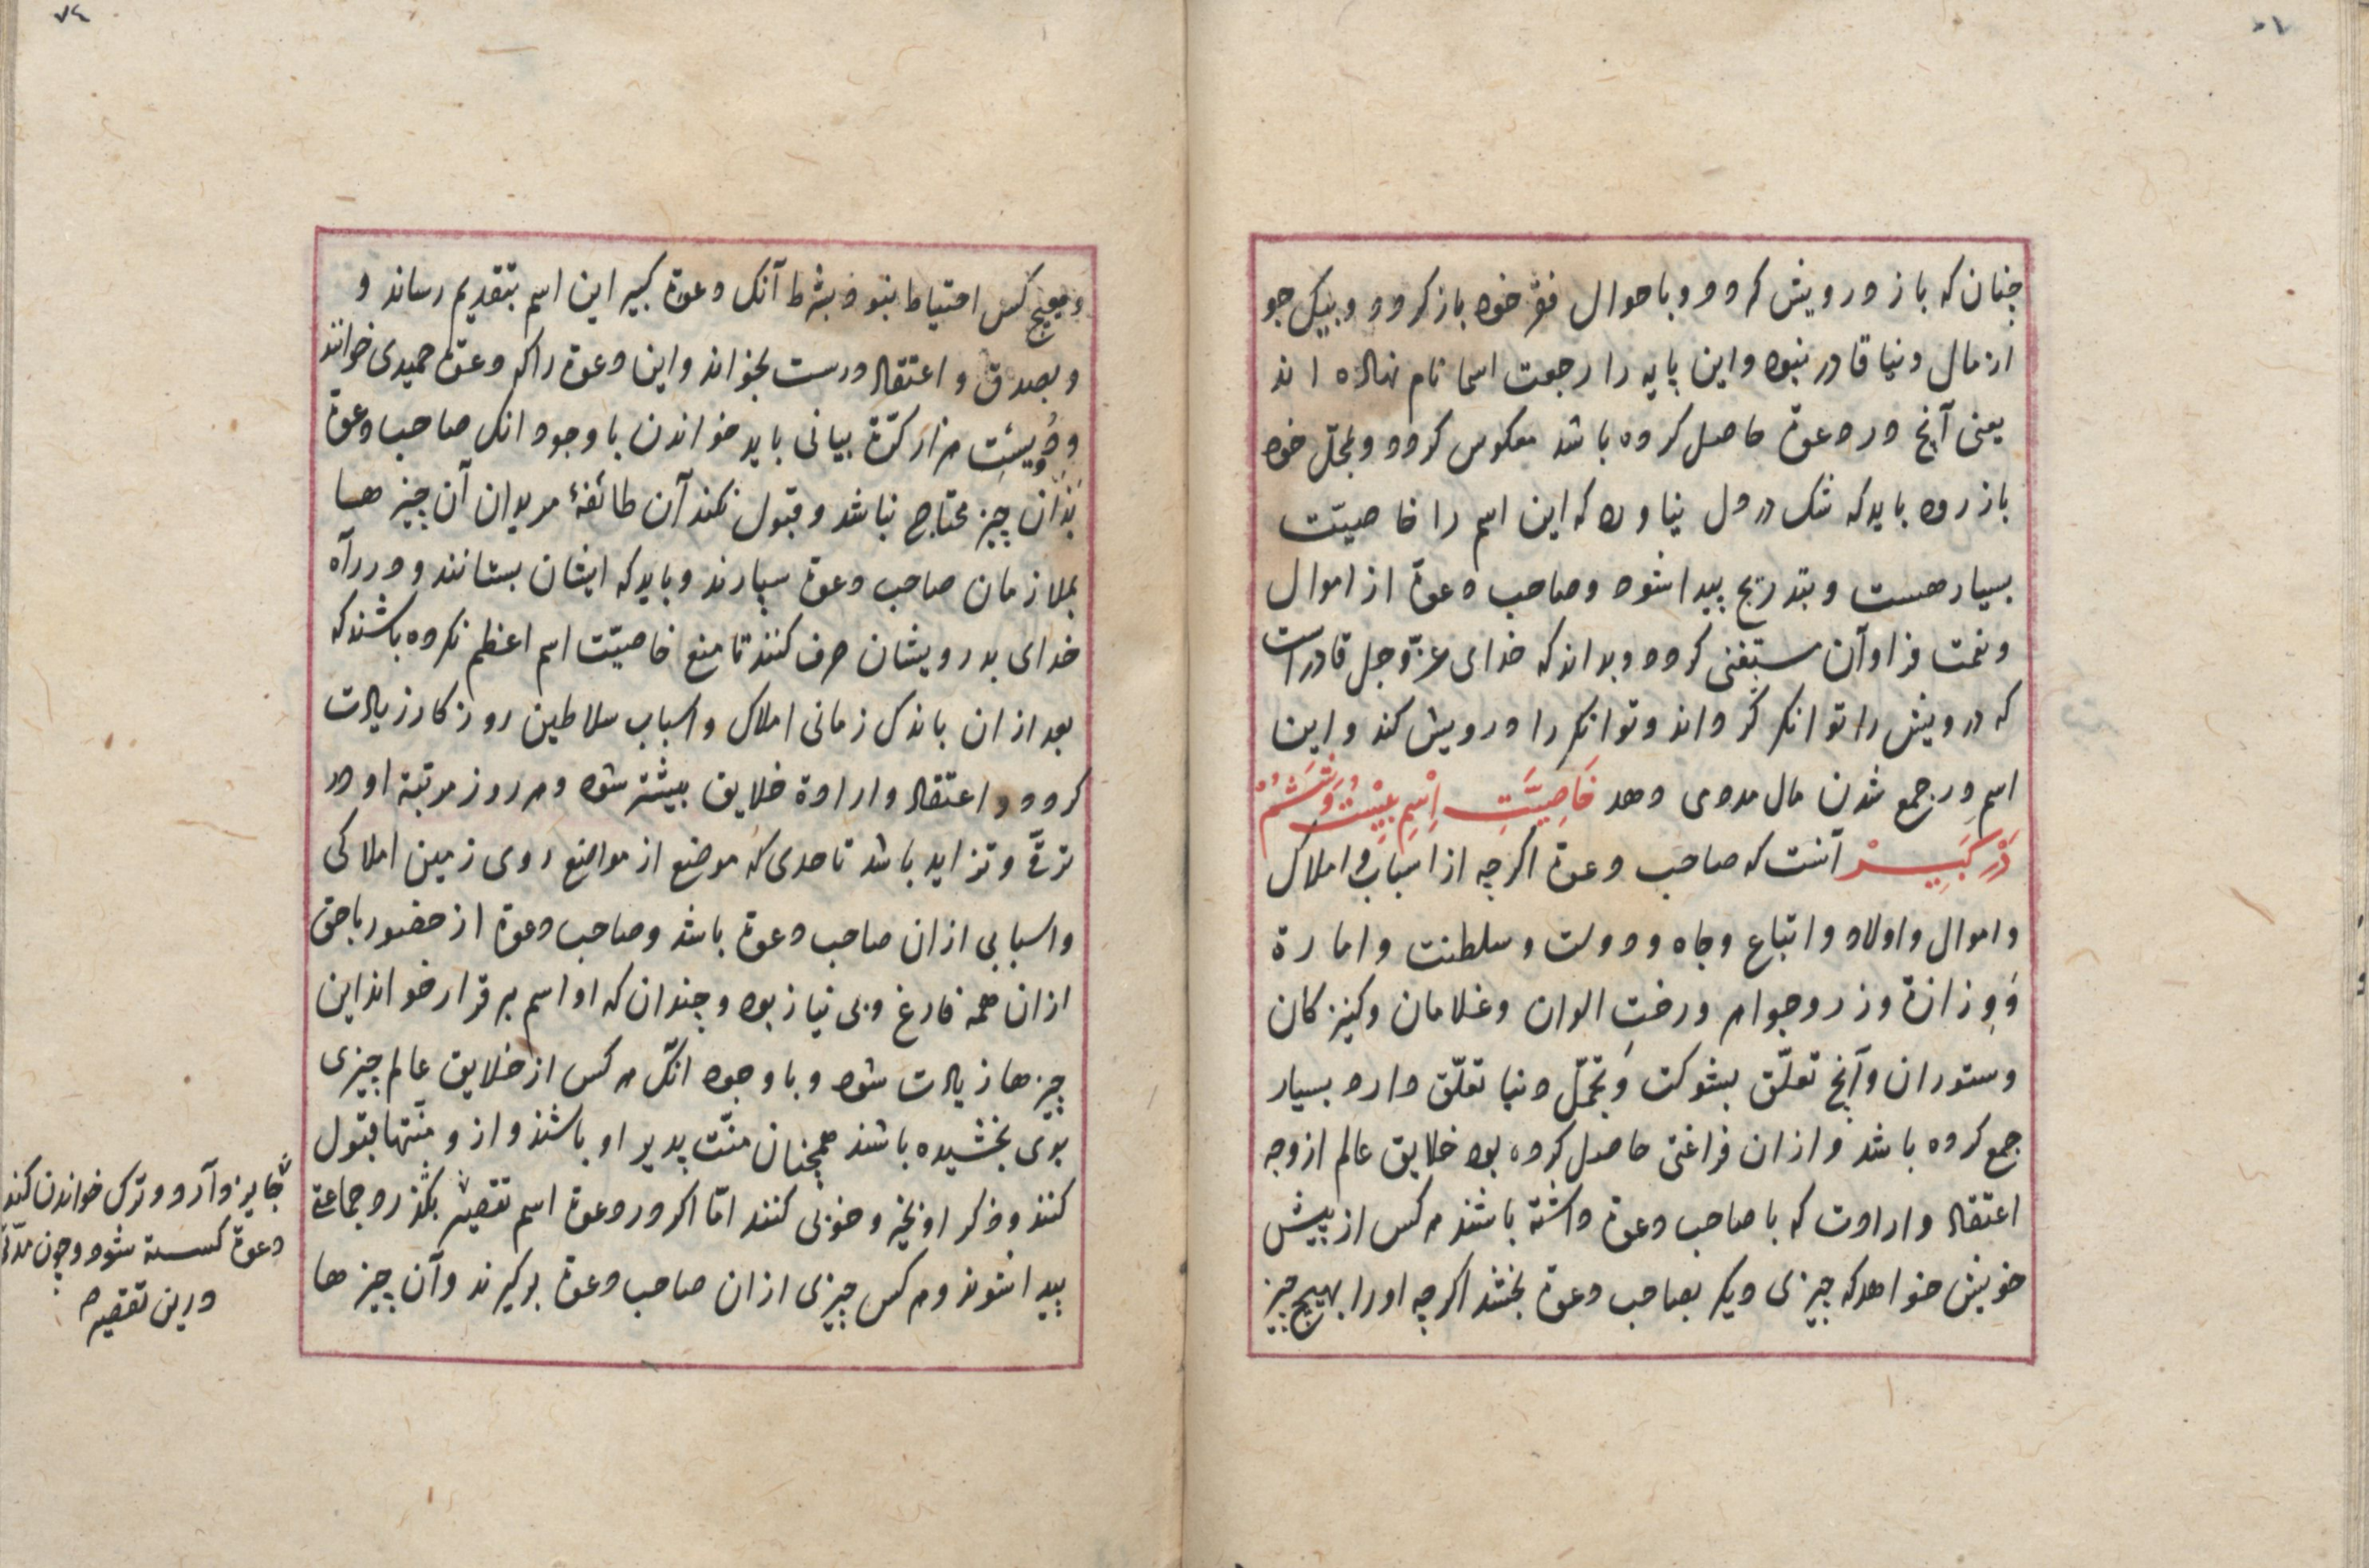 چنان که باز درویش کردد و باحوال فقر خود باز کردد و بیک جو
از مال دنیا قادر نبود و این پایه را رجعت اسما نام نهاده اند
یعنی آنچ در دعوة حاصل کرده باشد معکوس کردد و بمحلّ خود
باز رود باید که شک در دل نیاورد که این اسم را خاصیّت
بسیار هست و بتدریج پیدا شود و صاحب دعوة از اموال
و نعمت فراوان مستغنی کردد و بداند که خدای عزّ و جل قادر است
که درویش را توانکر کرداند و توانکر را درویش کند و این
اسم در جمع شدن مال مددی دهد خَاصِیَّتِ اِسْمِ بِیْسْتُ وَشَشُمْ
دَرْ کَبِیرْ آنست که صاحب دعوة اکرچه از اسباب و املاک
و اموال و اولاد و اتباع و جاه و دولت و سلطنت و امارة
وَوِزارة و زر و جواهر و رختِ الوان و غلامان و کنیزکان
و ستوران و آنچ تعلّق بشوکت و تجمّل دنیا تعلّق دارد بسیار
جمع کرده باشد و ازان فراغتی حاصل کرده بود خلایق عالم از وجه
اعتقاد و ارادت که با صاحب دعوة داشته باشند هر کس از پیش
خویش خواهد که چیزی دیکر بصاحب دعوة بخشد اکرچه او را بهیچ چیز
و بهیچ کس احتیاط نبود بشرط آنک دعوة کبیر این اسم بتقدیم رساند و
و بصدق و اعتقاد درست بخواند و این دعوة را که دعوة حمیدی خوانند
و دُویست هزار کرّة بیانی باید خواندن با وجود انک صاحب دعوة
بذان چیز محتاج نباشد و قبول نکند آن طائفۀ مریدان آن چیزها
بملازمان صاحب دعوة سپارند و باید که ایشان بستانند و در راه
خدای بدرویشان صرف کنند تا منع خاصیّت اسم اعظم نکرده باشند که
بعد ازان باندک زمانی املاک و اسباب سلاطین روزکار زیادت
کردد و اعتقاد و ارادة خلایق بیشتر شود و هر روز مرتبۀ او در
ترقّی و تزاید باشد تا حدی که موضع از مواضع روی زمین املاکی
و اسبابی ازان صاحب دعوة باشد و صاحب دعوة از حضور باحق
ازان همه فارغ و بی نیاز بود و چندان که او اسم برقرار خواند این
چیزها زیادت شود و با وجود انک هر کس از خلایق عالم چیزی
بوی بخشیده باشند همچنان منّت پدیر او باشند و از و منّتها قبول
کنند و ذکر او بخیر و خوبی کنند امّا اکر در دعوة اسم تقصیر بکند و جماعتی
پیدا شوند و هر کس چیزی ازان صاحب دعوة برکیرند و آن چیزها
جایز دارد و ترک خواندن کند
دعوة کسسته شود و چون مدّتی
درین تقصیر